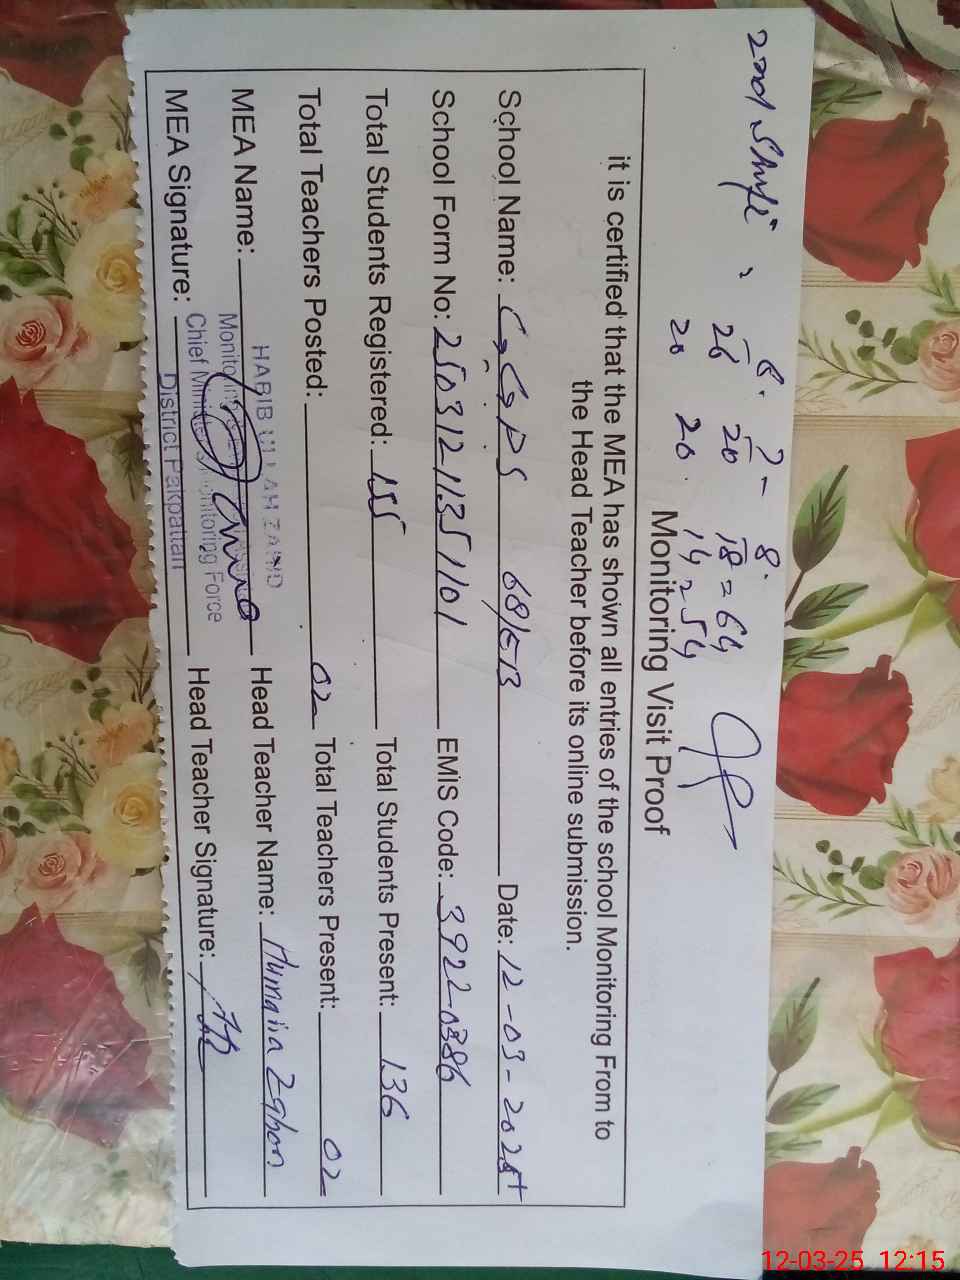 2nd Shift
8. 7- 8.
26 20 18 = 64
20 20 14 = 54
Monitoring Visit Proof
it is certified that the MEA has shown all entries of the school Monitoring From to
the Head Teacher before its online submission.
School Name: GGPS 68/EB Date: 12-03-2025
School Form No: 25031211351101 EMIS Code: 3922-0386
Total Students Registered: 155 Total Students Present: 136
Total Teachers Posted: 02 Total Teachers Present: 02
MEA Name: HABIB ULLAH Head Teacher Name: Humaira
MEA Signature: Head Teacher Signature:
Chief Minister's Monitoring Force
District Pakpattan
12-03-25 12:15